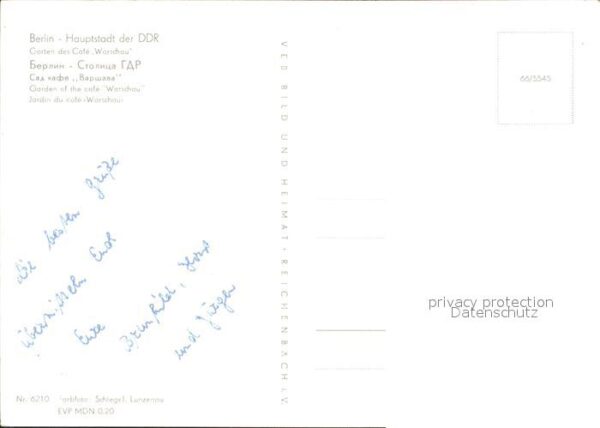 Berlin - Hauptstadt der DDR
Garten des Café „Warschau"
Берлин - Столица ГДР
Сад кафе „Варшава"
Garden of the café "Warschau"
Jardin du café «Warschau»
VEB BILD UND HEIMAT · REICHENBACH I. V.
66/5545
die besten Grüße
übermitteln Euch
Eure Brunhild, Horst
und Jürgen
privacy protection
Datenschutz
Nr. 6210 Farbfoto: Schregel, Lunzenau
EVP MDN 0,20